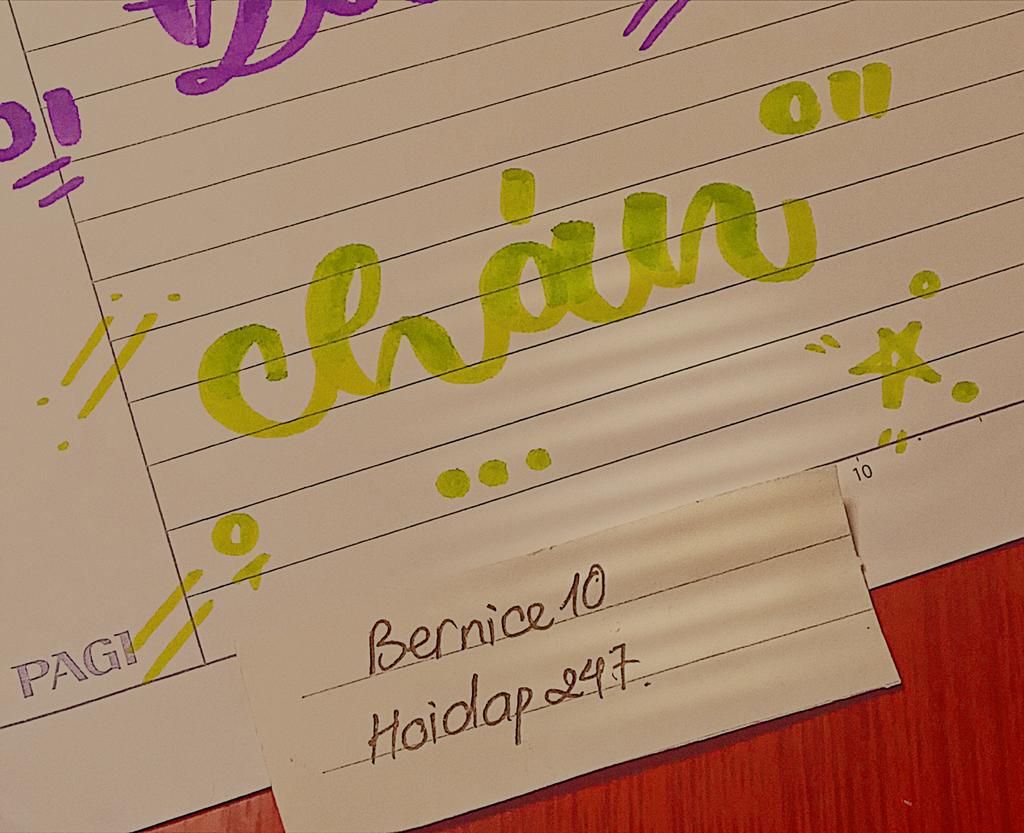 chán
10
Bernice 10
Hoidap 247.
PAGI